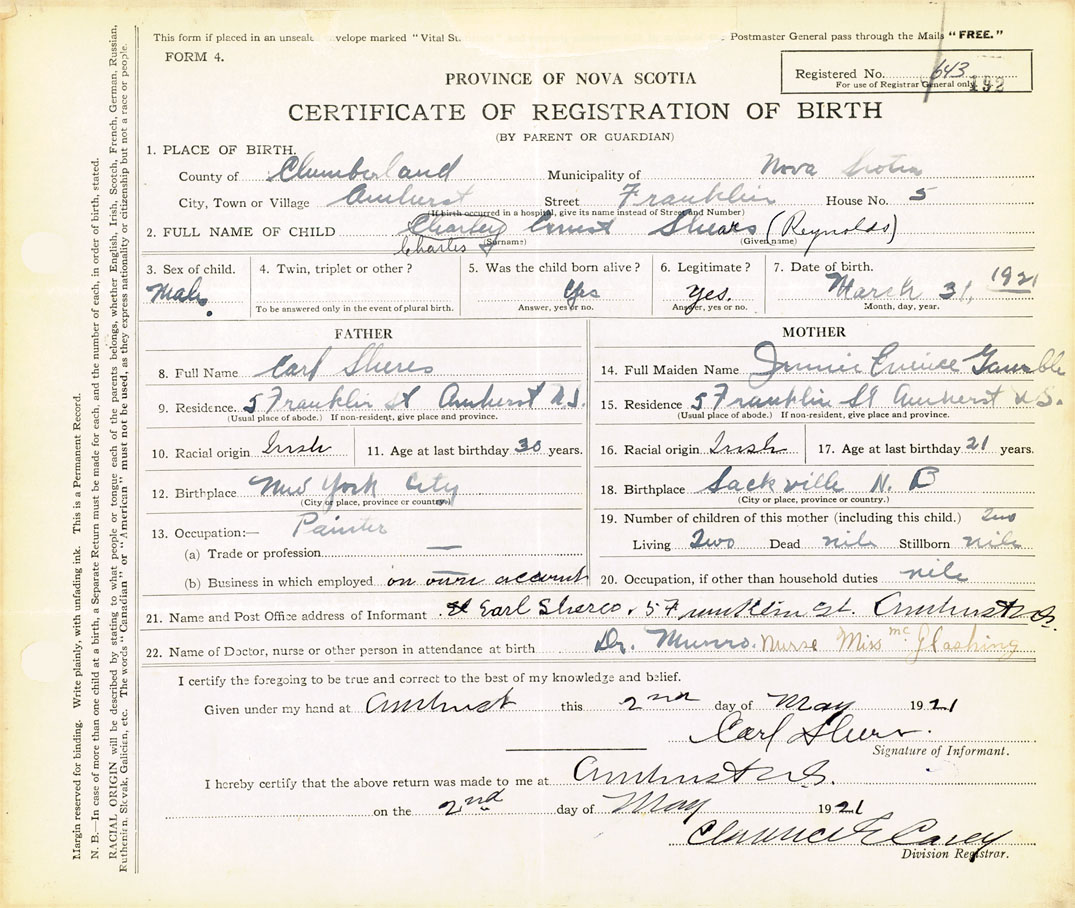 This form if placed in an unsealed envelope marked "Vital St Postmaster General pass through the Mails "FREE."
FORM 4.
PROVINCE OF NOVA SCOTIA
Registered No. 643
For use of Registrar General only 192
CERTIFICATE OF REGISTRATION OF BIRTH
(BY PARENT OR GUARDIAN)
1. PLACE OF BIRTH.
County of Cumberland Municipality of Nova Scotia
City, Town or Village Amherst Street Franklin House No. 5
(If birth occurred in a hospital, give its name instead of Street and Number)
2. FULL NAME OF CHILD Charley Ernest Shears (Reynolds)
Charles (Surname) (Given name)
3. Sex of child. 4. Twin, triplet or other? 5. Was the child born alive? 6. Legitimate? 7. Date of birth.
Male. Yes Yes. March 31, 1921
To be answered only in the event of plural birth. Answer, yes or no. Answer, yes or no. Month, day, year.
FATHER
8. Full Name Carl Sheres
9. Residence. 5 Franklin St Amherst N.S.
(Usual place of abode.) If non-resident, give place and province.
10. Racial origin Irish 11. Age at last birthday 30 years.
12. Birthplace New York City
(City or place, province or country)
13. Occupation:— Painter
(a) Trade or profession —
(b) Business in which employed on own account
MOTHER
14. Full Maiden Name Gamble
15. Residence 5 Franklin St Amherst N.S.
(Usual place of abode.) If non-resident, give place and province.
16. Racial origin Irish 17. Age at last birthday 21 years.
18. Birthplace Sackville N. B
(City or place, province or country.)
19. Number of children of this mother (including this child.) Two
Living Two Dead nile Stillborn nile
20. Occupation, if other than household duties nile
21. Name and Post Office address of Informant Earl Sheres. 5 Franklin St. Amherst N.S.
22. Name of Doctor, nurse or other person in attendance at birth Dr. Munro. Nurse Miss Mc Glashing
I certify the foregoing to be true and correct to the best of my knowledge and belief.
Given under my hand at Amherst this 2nd day of May 1921
Carl Shers.
Signature of Informant.
I hereby certify that the above return was made to me at Amherst N.S.
on the 2nd day of May 1921
Clarence E Casey
Division Registrar.
Margin reserved for binding. Write plainly, with unfading ink. This is a Permanent Record.
N. B.—In case of more than one child at a birth, a Separate Return must be made for each, and the number of each, in order of birth, stated.
RACIAL ORIGIN will be described by stating to what people or tongue each of the parents belongs, whether English, Irish, Scotch, French, German, Russian,
Ruthenian, Slovak, Galician, etc. The words "Canadian" or "American" must not be used, as they express nationality or citizenship but not a race or people.